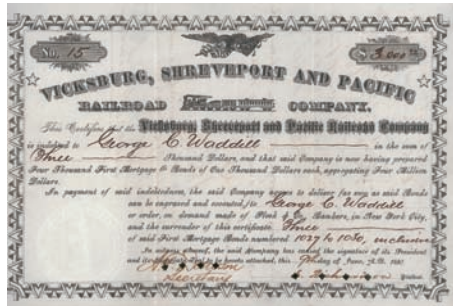 No. 15
$3,000
VICKSBURG, SHREVEPORT AND PACIFIC
RAILROAD COMPANY.
This Certifies that the Vicksburg, Shreveport and Pacific Railroad Company
is indebted to George C. Waddell in the sum of
Three Thousand Dollars, and that said Company is now having prepared
Four Thousand First Mortgage Bonds of One Thousand Dollars each, aggregating Four Million
Dollars.
In payment of said indebtedness, the said Company agrees to deliver for any as said Bonds
can be engraved and executed, to George C. Waddill
or order, on demand made of Bankers, in New York City,
and the surrender of this certificate Three
of said First Mortgage Bonds numbered 1027 to 1030, inclusive
In witness whereof, the said Company has caused the signature of its President
and Secretary to be hereto attached, this 7th day of June, A.D. 1881
Secretary